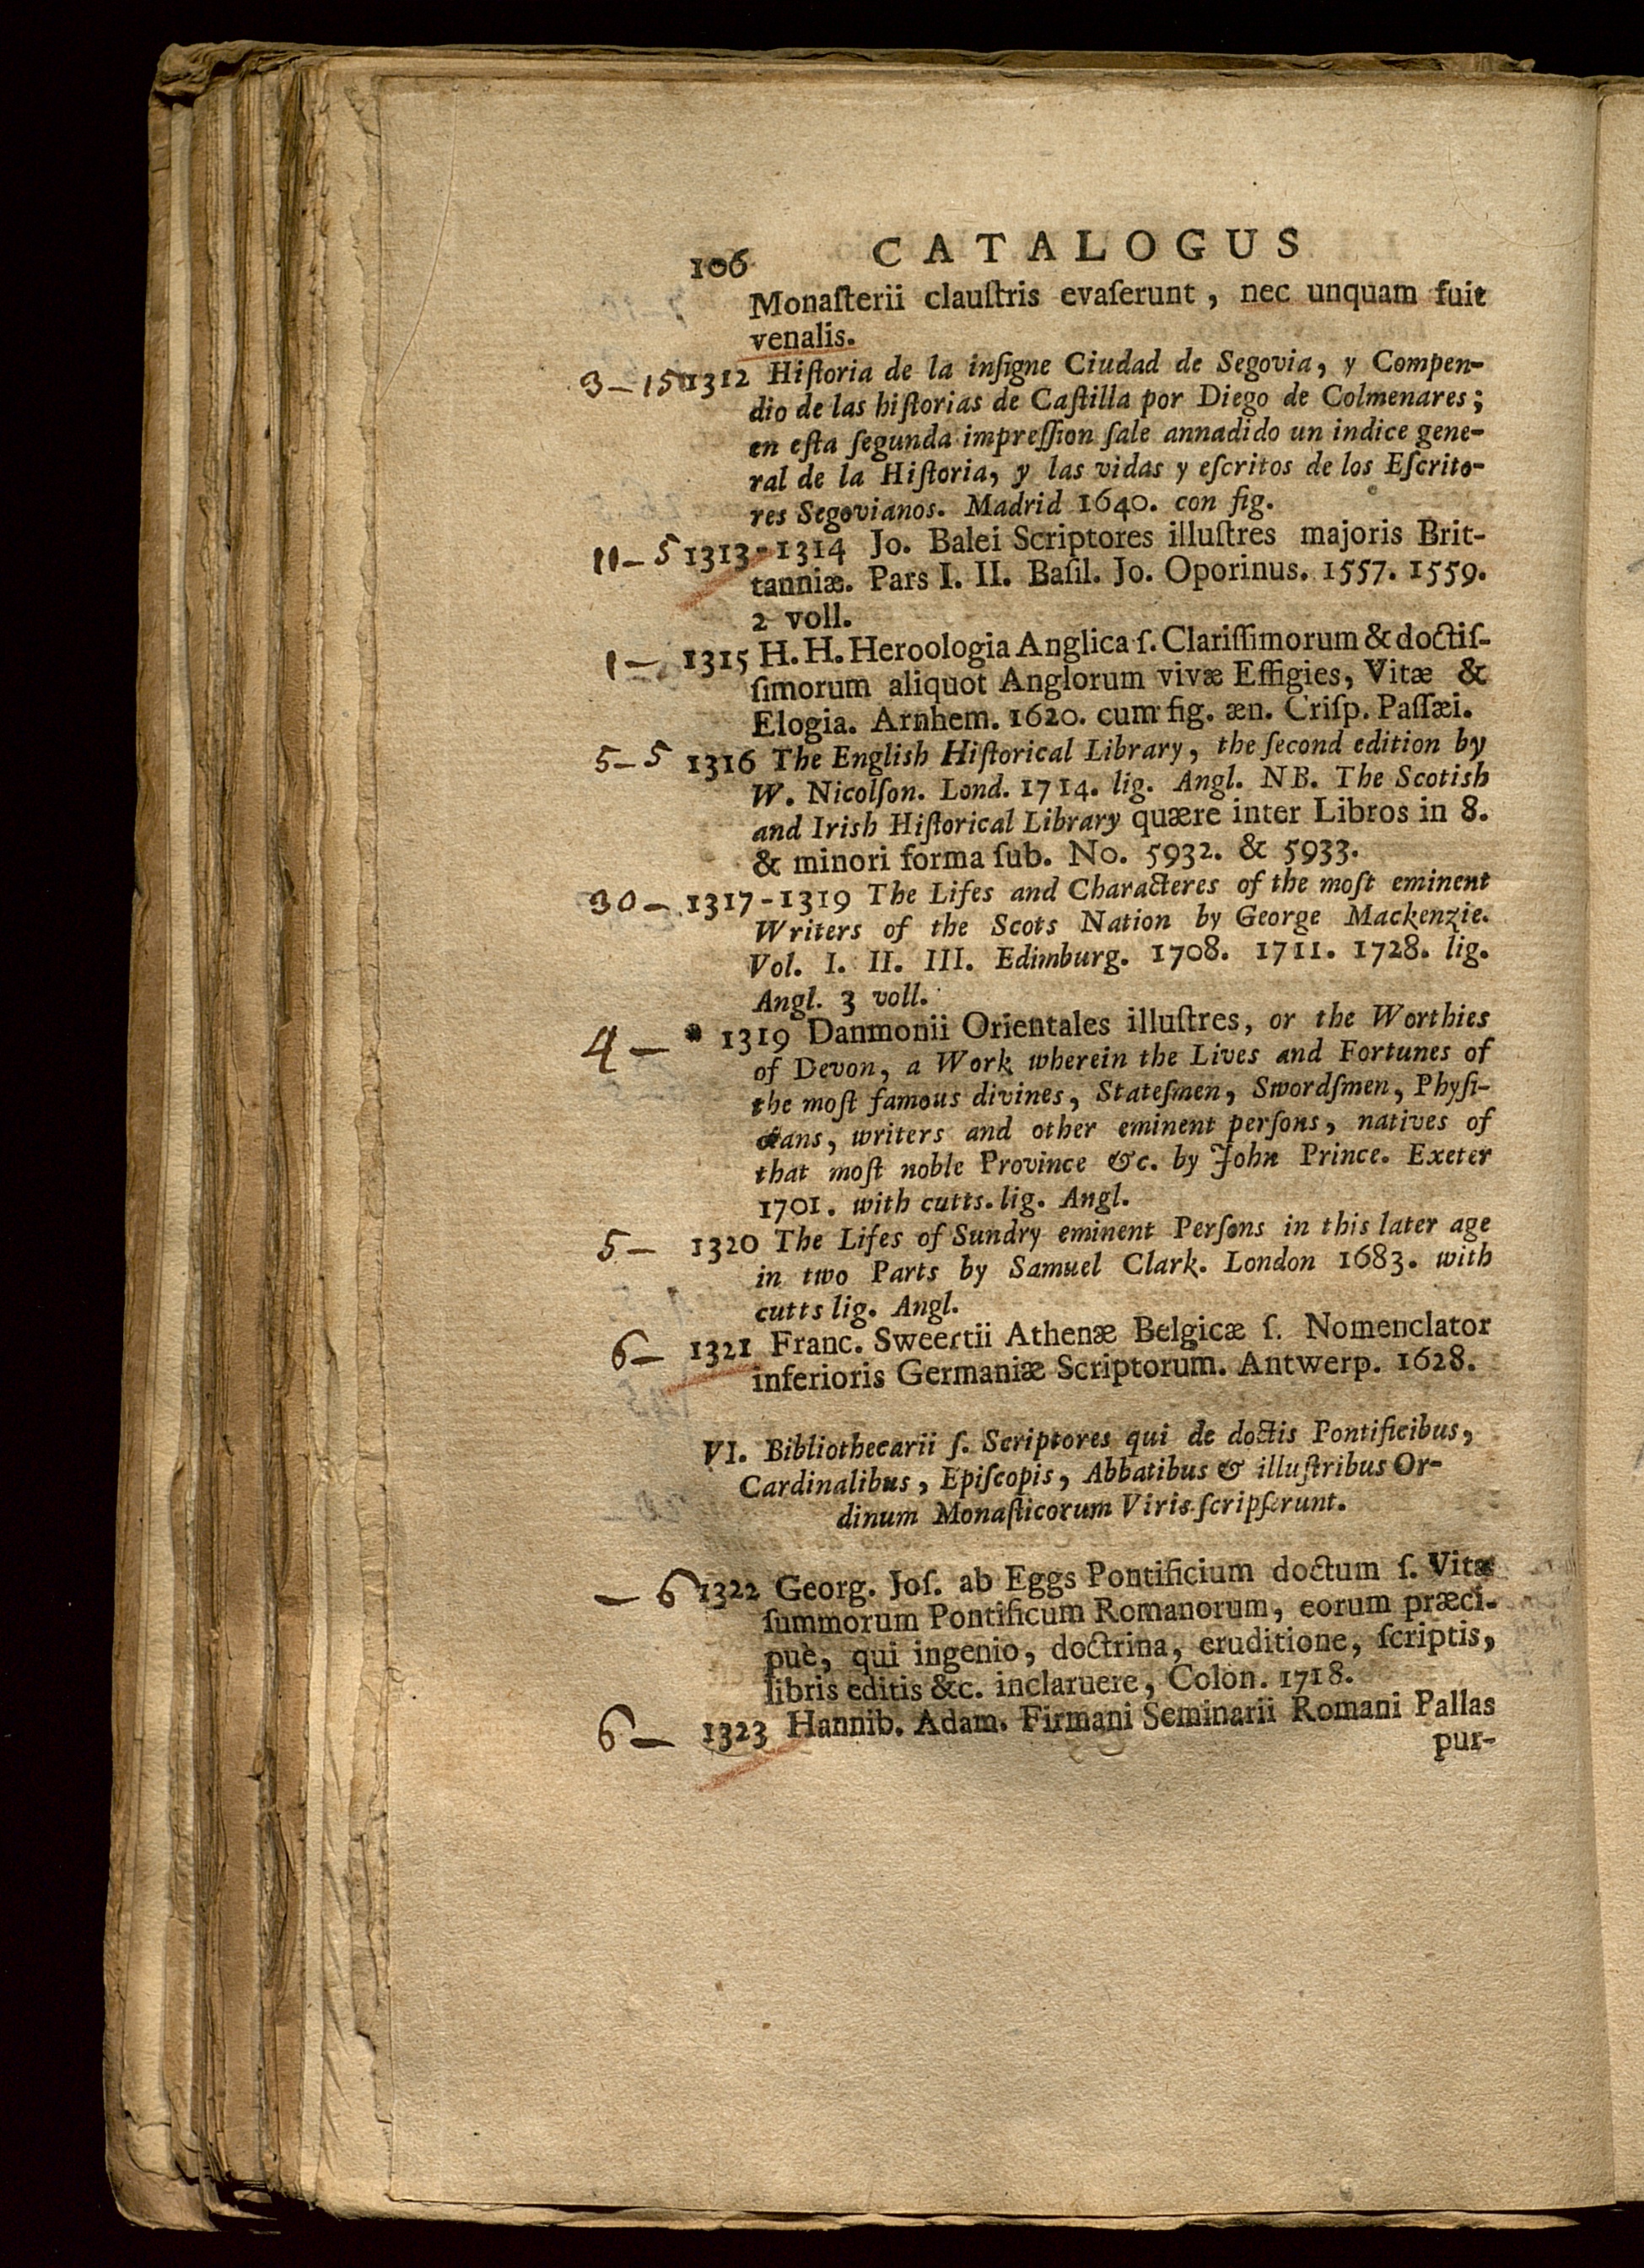 106 CATALOGUS
Monaſterii clauſtris evaſerunt, nec unquam fuit
venalis.
3-15 1312 Hiſtoria de la inſigne Ciudad de Segovia, y Compen-
dio de las hiſtorias de Caſtilla por Diego de Colmenares;
en eſta ſegunda impreſſion ſale annadido un indice gene-
ral de la Hiſtoria, y las vidas y eſcritos de los Eſcrito-
res Segovianos. Madrid 1640. con fig.
11-5 1313-1314 Jo. Balei Scriptores illuſtres majoris Brit-
tanniæ. Pars I. II. Baſil. Jo. Oporinus. 1557. 1559.
2 voll.
1- 1315 H. H. Heroologia Anglica ſ. Clariſſimorum & doctiſ-
ſimorum aliquot Anglorum vivæ Effigies, Vitæ &
Elogia. Arnhem. 1620. cum fig. æn. Criſp. Paſſæi.
5-5 1316 The English Hiſtorical Library, the ſecond edition by
W. Nicolſon. Lond. 1714. lig. Angl. NB. The Scotish
and Irish Hiſtorical Library quære inter Libros in 8.
& minori forma ſub. No. 5932. & 5933.
30- 1317-1319 The Lifes and Characteres of the moſt eminent
Writers of the Scots Nation by George Mackenzie.
Vol. I. II. III. Edimburg. 1708. 1711. 1728. lig.
Angl. 3 voll.
4- * 1319 Danmonii Orientales illuſtres, or the Worthies
of Devon, a Work wherein the Lives and Fortunes of
the moſt famous divines, Stateſmen, Swordſmen, Phyſi-
cians, writers and other eminent perſons, natives of
that moſt noble Province &c. by John Prince. Exeter
1701. with cutts. lig. Angl.
5- 1320 The Lifes of Sundry eminent Perſons in this later age
in two Parts by Samuel Clark. London 1683. with
cutts lig. Angl.
6- 1321 Franc. Sweertii Athenæ Belgicæ ſ. Nomenclator
inferioris Germaniæ Scriptorum. Antwerp. 1628.
VI. Bibliothecarii ſ. Scriptores qui de doctis Pontificibus,
Cardinalibus, Epiſcopis, Abbatibus & illuſtribus Or-
dinum Monaſticorum Viris ſcripſerunt.
-6 1322 Georg. Joſ. ab Eggs Pontificium doctum ſ. Vitæ
ſummorum Pontificum Romanorum, eorum præci-
puè, qui ingenio, doctrina, eruditione, ſcriptis,
libris editis &c. inclaruere, Colon. 1718.
6- 1323 Hannib. Adam. Firmani Seminarii Romani Pallas
pur-